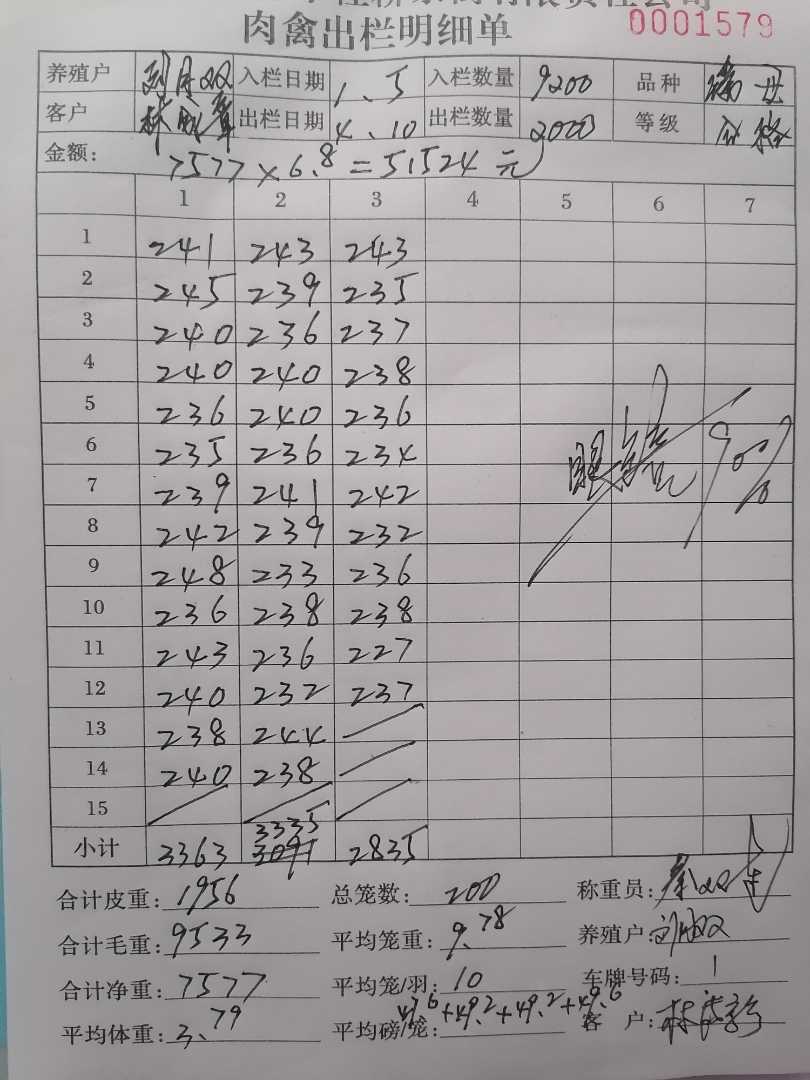 有限责任公司
肉禽出栏明细单 0001579
养殖户 刘 双 入栏日期 1、5 入栏数量 9200 品种 母
客户 林 章 出栏日期 4、10 出栏数量 2000 等级 合格
金额: 7577×6.8=51524元
1 2 3 4 5 6 7
1 241 243 243
2 245 239 235
3 240 236 237
4 240 240 238
5 236 240 236
6 235 236 234
7 239 241 242
8 242 239 232
9 248 233 236
10 236 238 238
11 243 236 227
12 240 232 237
13 238 244
14 240 238
15
90%
小计 3363 3335 3091 2835
合计皮重: 1956 总笼数: 200 称重员:
合计毛重: 9533 平均笼重: 9.78 养殖户: 刘 双
合计净重: 7577 平均笼/羽: 10 车牌号码: 1
平均体重: 3.79 平均磅/笼: 47.6+49.2+49.2+49.6 客 户: 林